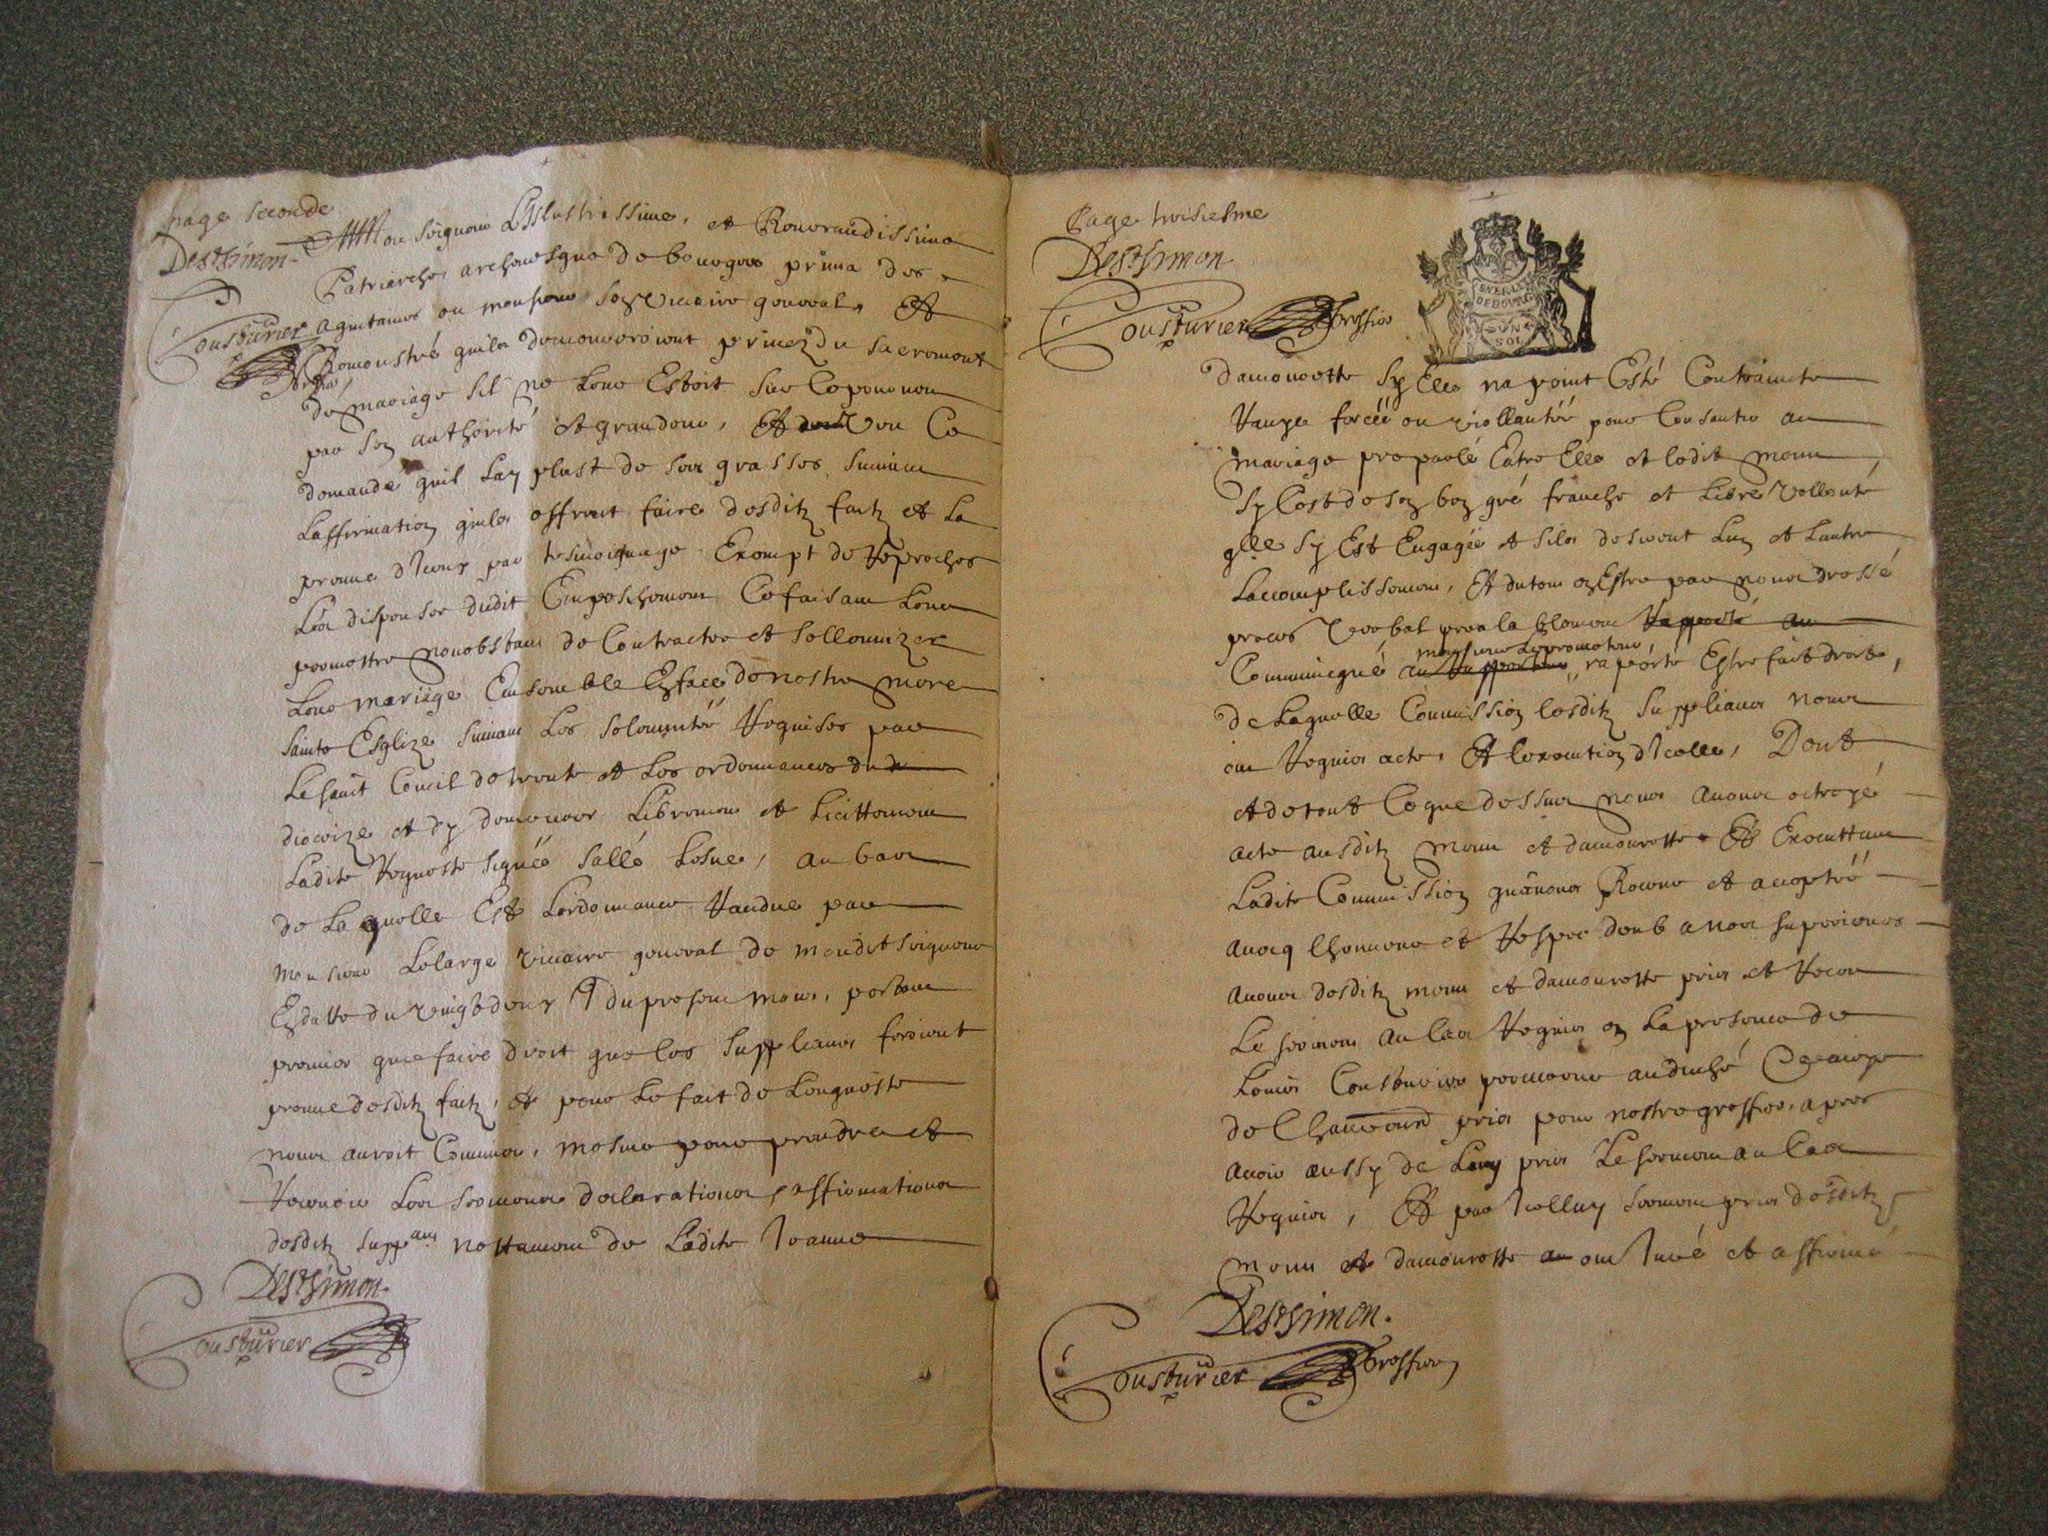 page seconde
DeStSimon
Mon seigneur Lillustrissime, et Reverandissime
Patriarche archevesque de bourges prima des
Cousturier
greffier
aquitames ou monsieur son viccaire general, Et
Remonstré quils demeureroient privez du sacrement
de mariage sil ne leur Estoit sur ce pourveu
par son authorité et grandeur, Et veu Ce
demandé quil luy plust de ses grasses suivant
Laffirmation quils offrent faire desditz faitz et La
preuve diceux par tesmoignage Exempt de Reproches
Les dispenser dudit Empeschement Ce faisant Leur
permettre nonobstant de Contracter et sollemnizer
Leur mariage Ensemble En face de nostre mere
Sainte Esglize suivant Les solemnitéz Requises par
Le saint Concil de trente et Les ordonnances du
dioceize et dy demeurer Librement et Licittement
Ladite Requeste signée Sallé , au bas
de Laquelle Est Lordonnance Randue par
Monsieur Lelarge viccaire general de mondit seigneur
En datte du vingt deux du present mois, portant
premier que faire droit que les suppliants feroient
preuve desditz faitz, et pour Le fait de Lenqueste
nous auroit Commis, mesme pour prendre et
Recevoir Les serments declarations, affirmations
desditz supp.ans nottament de Ladite Jeanne
DeStSimon
Cousturier
Page troisiesme
DeStSimon
Cousturier greffier
GENERALITE
DE BOURGES
UN
SOL
damourette Sy Elle na point Esté Contrainte
Ravye forcée ou viollantée pour Consantir au
mariage preparlé Entre Elle et ledit monn
Sy Cest de son bon gré franche et Libre vollonté
qlle sy Est Engagée et silz desirent Lun et Lautre
Laccomplissement, Et du tout en Estre par nous dressé
proces verbal pour le
monsieur Le promoteur
Communicqué au raporté Estre fait droit,
de Laquelle Commission lesditz suppliants nous
ont Requis acte, Et lexecution dicelle, Dont
et de tout Ce que dessus nous avons octroyé
acte ausditz monn et damourette Et Executtant
Ladite Commission quavons Receue et acceptée
avecq lhonneur et Respec deub a nos superieurs
avons desditz monn et damourette pris et Receu
Le serment au cas Requis en La presence de
Louis Cousturier procureur au duché
de Chauvour pris pour nostre greffier, apres
avoir aussy de Luy pris Le serment au cas
Requis, Et par Icelluy serment pris desditz
monn et damourette ont Juré et affirmé
DeStSimon.
Cousturier greffier